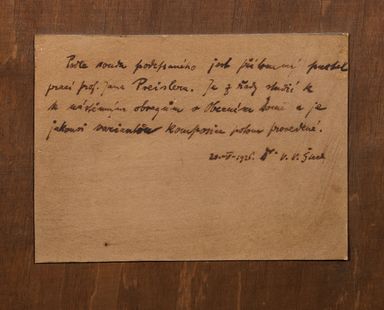 Podle soudu podepsaného jest přítomný pastel
prací prof. Jana Preislera. Je z řady studií k
k nástěnným obrazům v Obecním domě a je
jakousi variantou komposice potom provedené.
1926. Dr V. V. Štech